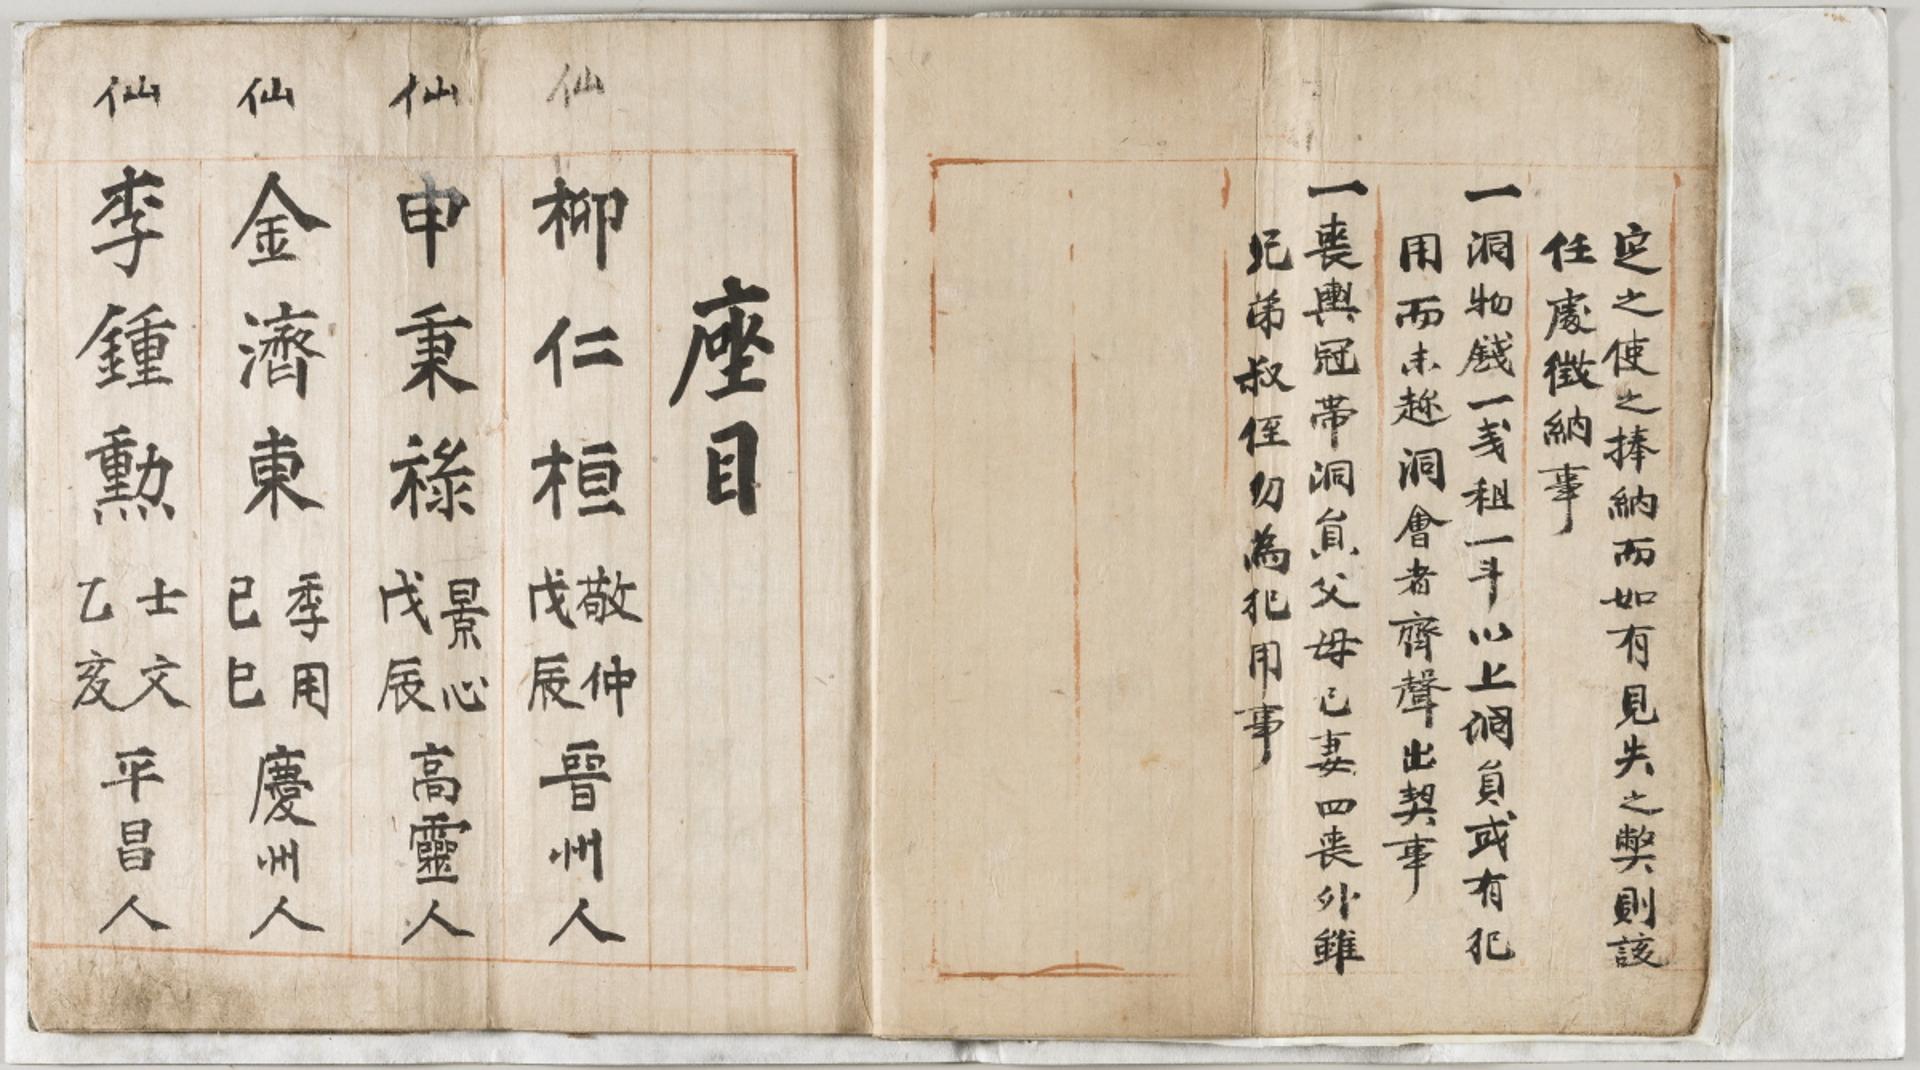 定之使之捧納而如有見失之弊則該
任處徵納事
一洞物錢一戔租一斗以上洞員或有犯
用而未趂洞會者齊聲出契事
一喪輿冠帶洞員父母已妻四喪外雖
兄弟叔侄勿為犯用事
座目
仙
柳仁桓 敬仲 戊辰 晉州人
仙
申秉祿 景心 戊辰 高靈人
仙
金濟東 季用 己巳 慶州人
仙
李鍾勳 士文 乙亥 平昌人